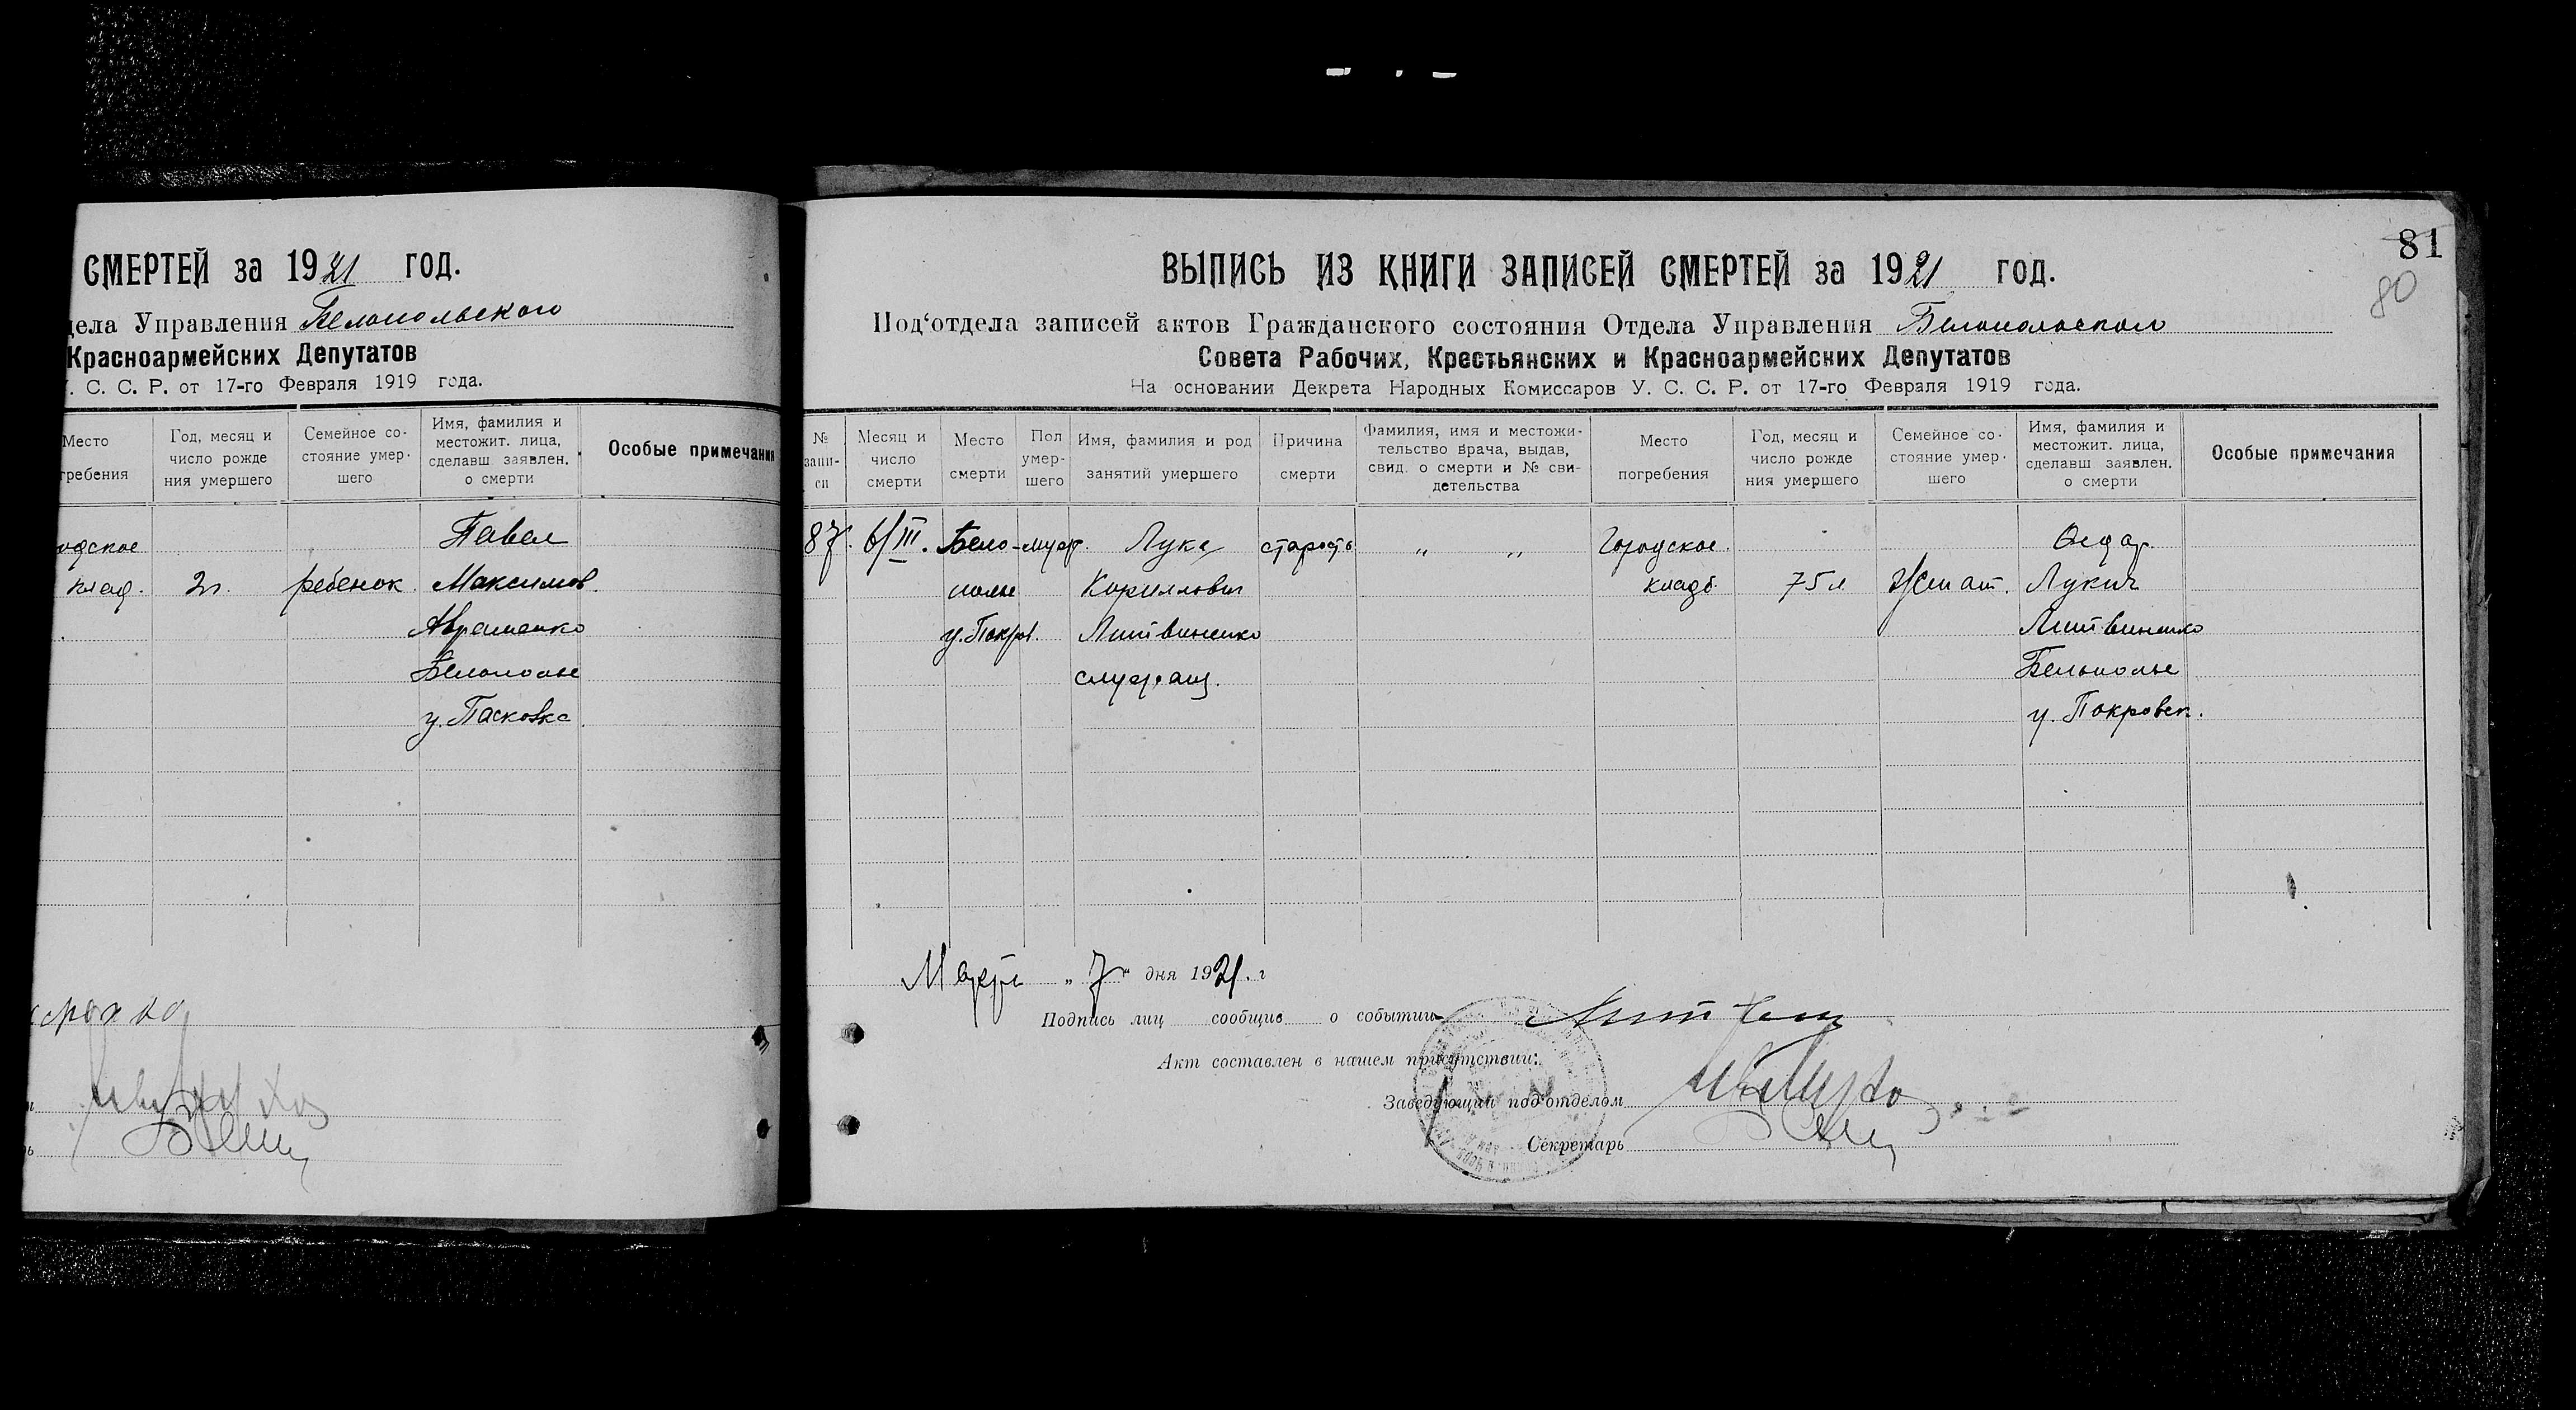 СМЕРТЕЙ за 1921 год.
дела Управления Белопольского
Красноармейских Депутатов
У. С. С. Р. от 17-го Февраля 1919 года.
Место
гребения
Год, месяц и
число рожде
ния умершего
Семейное со-
стояние умер-
шего
Имя, фамилия и
местожит. лица,
сделавш. заявлен.
о смерти
Особые примечания
одское
клад.
2 г.
ребенок.
Павел
Максимов.
Авраменко
Белополье
у. Пасковка.
81
80
ВЫПИСЬ ИЗ КНИГИ ЗАПИСЕЙ СМЕРТЕЙ за 1921 год.
Под'отдела записей актов Гражданского состояния Отдела Управления Белопольского
Совета Рабочих, Крестьянских и Красноармейских Депутатов
На основании Декрета Народных Комиссаров У. С. С. Р. от 17-го Февраля 1919 года.
№
запи-
си
Месяц и
число
смерти
Место
смерти
Пол
умер-
шего
Имя, фамилия и род
занятий умершего
Причина
смерти
Фамилия, имя и местожи-
тельство врача, выдав,
свид. о смерти и № сви-
детельства
Место
погребения
Год, месяц и
число рожде
ния умершего
Семейное со-
стояние умер-
шего
Имя, фамилия и
местожит. лица,
сделавш. заявлен.
о смерти
Особые примечания
87.
6/III.
Бело-
полье
у. Покров.
муж.
Лука
Кориллович
Литвиненко
старость
" "
Городское.
кладб.
75 л
Женат.
Лукич
Литвиненко
Белополье
у. Покровск.
Март „7“ дня 1921. г
Подпись лиц сообщив о событии
Акт составлен в нашем присутствии:
Заведующий под'отделом
Секретарь